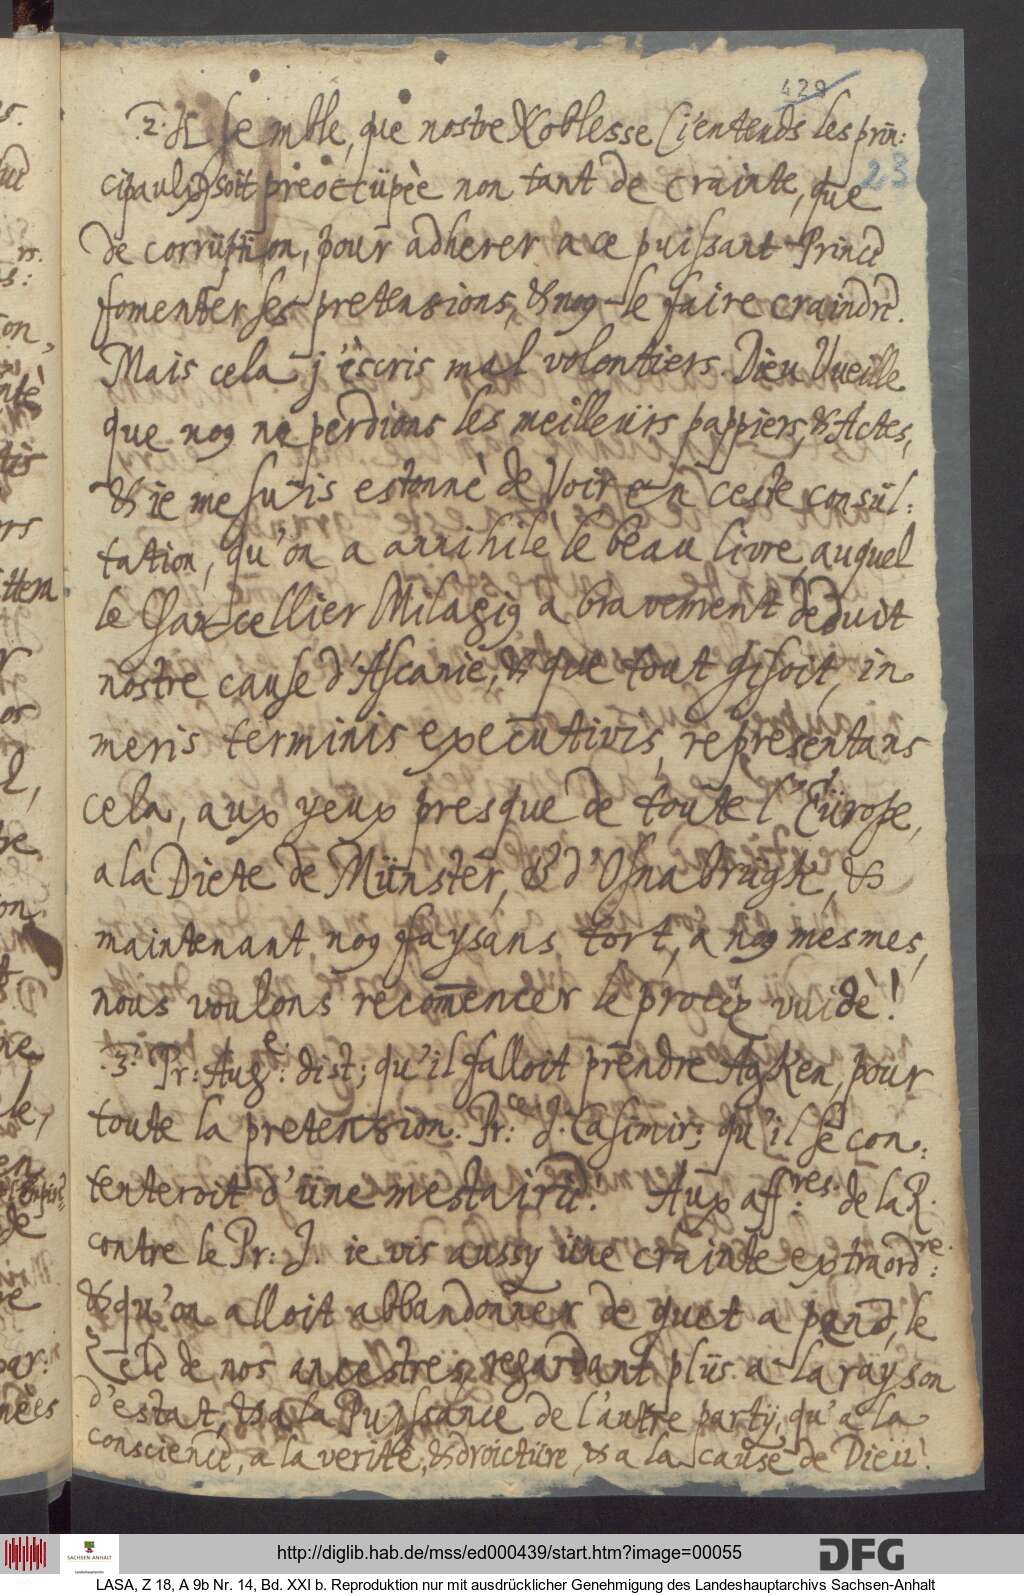 429
.2. Il semble, que nostre Noblesse (i'entends les prin:
23
cipaulx) soit preoccüpèe non tant de crainte, que
de corrüption, pour adherer a ce puissant Prince
fomenter ses pretensions, & nog le faire craindre.
Mais cela j'èscris mal volontiers. Dieu Vueille
que nog ne perdions les meilleürs pappiers, & Actes,
& ie me suis estonnè de Voir en ceste consül:
tation, qu'on a annihilè le beau livre, auquel
le Chancellier Milagig a bravement deduit
nostre cause d'Ascanie, & que tout gisoit, in
meris terminis execütivis, representans
cela, aux yeux presque de toute l'Eürope,
a la Diete de Münster, & d'Osnabrügk, &
maintenant nog faysans tort, a nog mesmes,
nous voulons recom̄encer le procéz vuidé!
.3. Pr: Aug.e: dist; qu'il falloit prendre Asken, pour
toute la pretension. Pr:ce J. Casimir; qu'il se con:
tenteroit d'üne mestairie. Aux aff:res. de la R.
contre le Pr: J. ie vis aussy üne crainte extraord:re.
& qu'on alloit abbandonner de guet a pend, le
Zele de nos ancestres, regardant plüs a la rayson
d'estat, & a la Puissance de l'autre party, qu'a la
conscience, a la verite, & droictüre, & a la cause de Dieu!
http://diglib.hab.de/mss/ed000439/start.htm?image=00055
SACHSEN-ANHALT
DFG
LASA, Z 18, A 9b Nr. 14, Bd. XXI b. Reproduktion nur mit ausdrücklicher Genehmigung des Landeshauptarchivs Sachsen-Anhalt